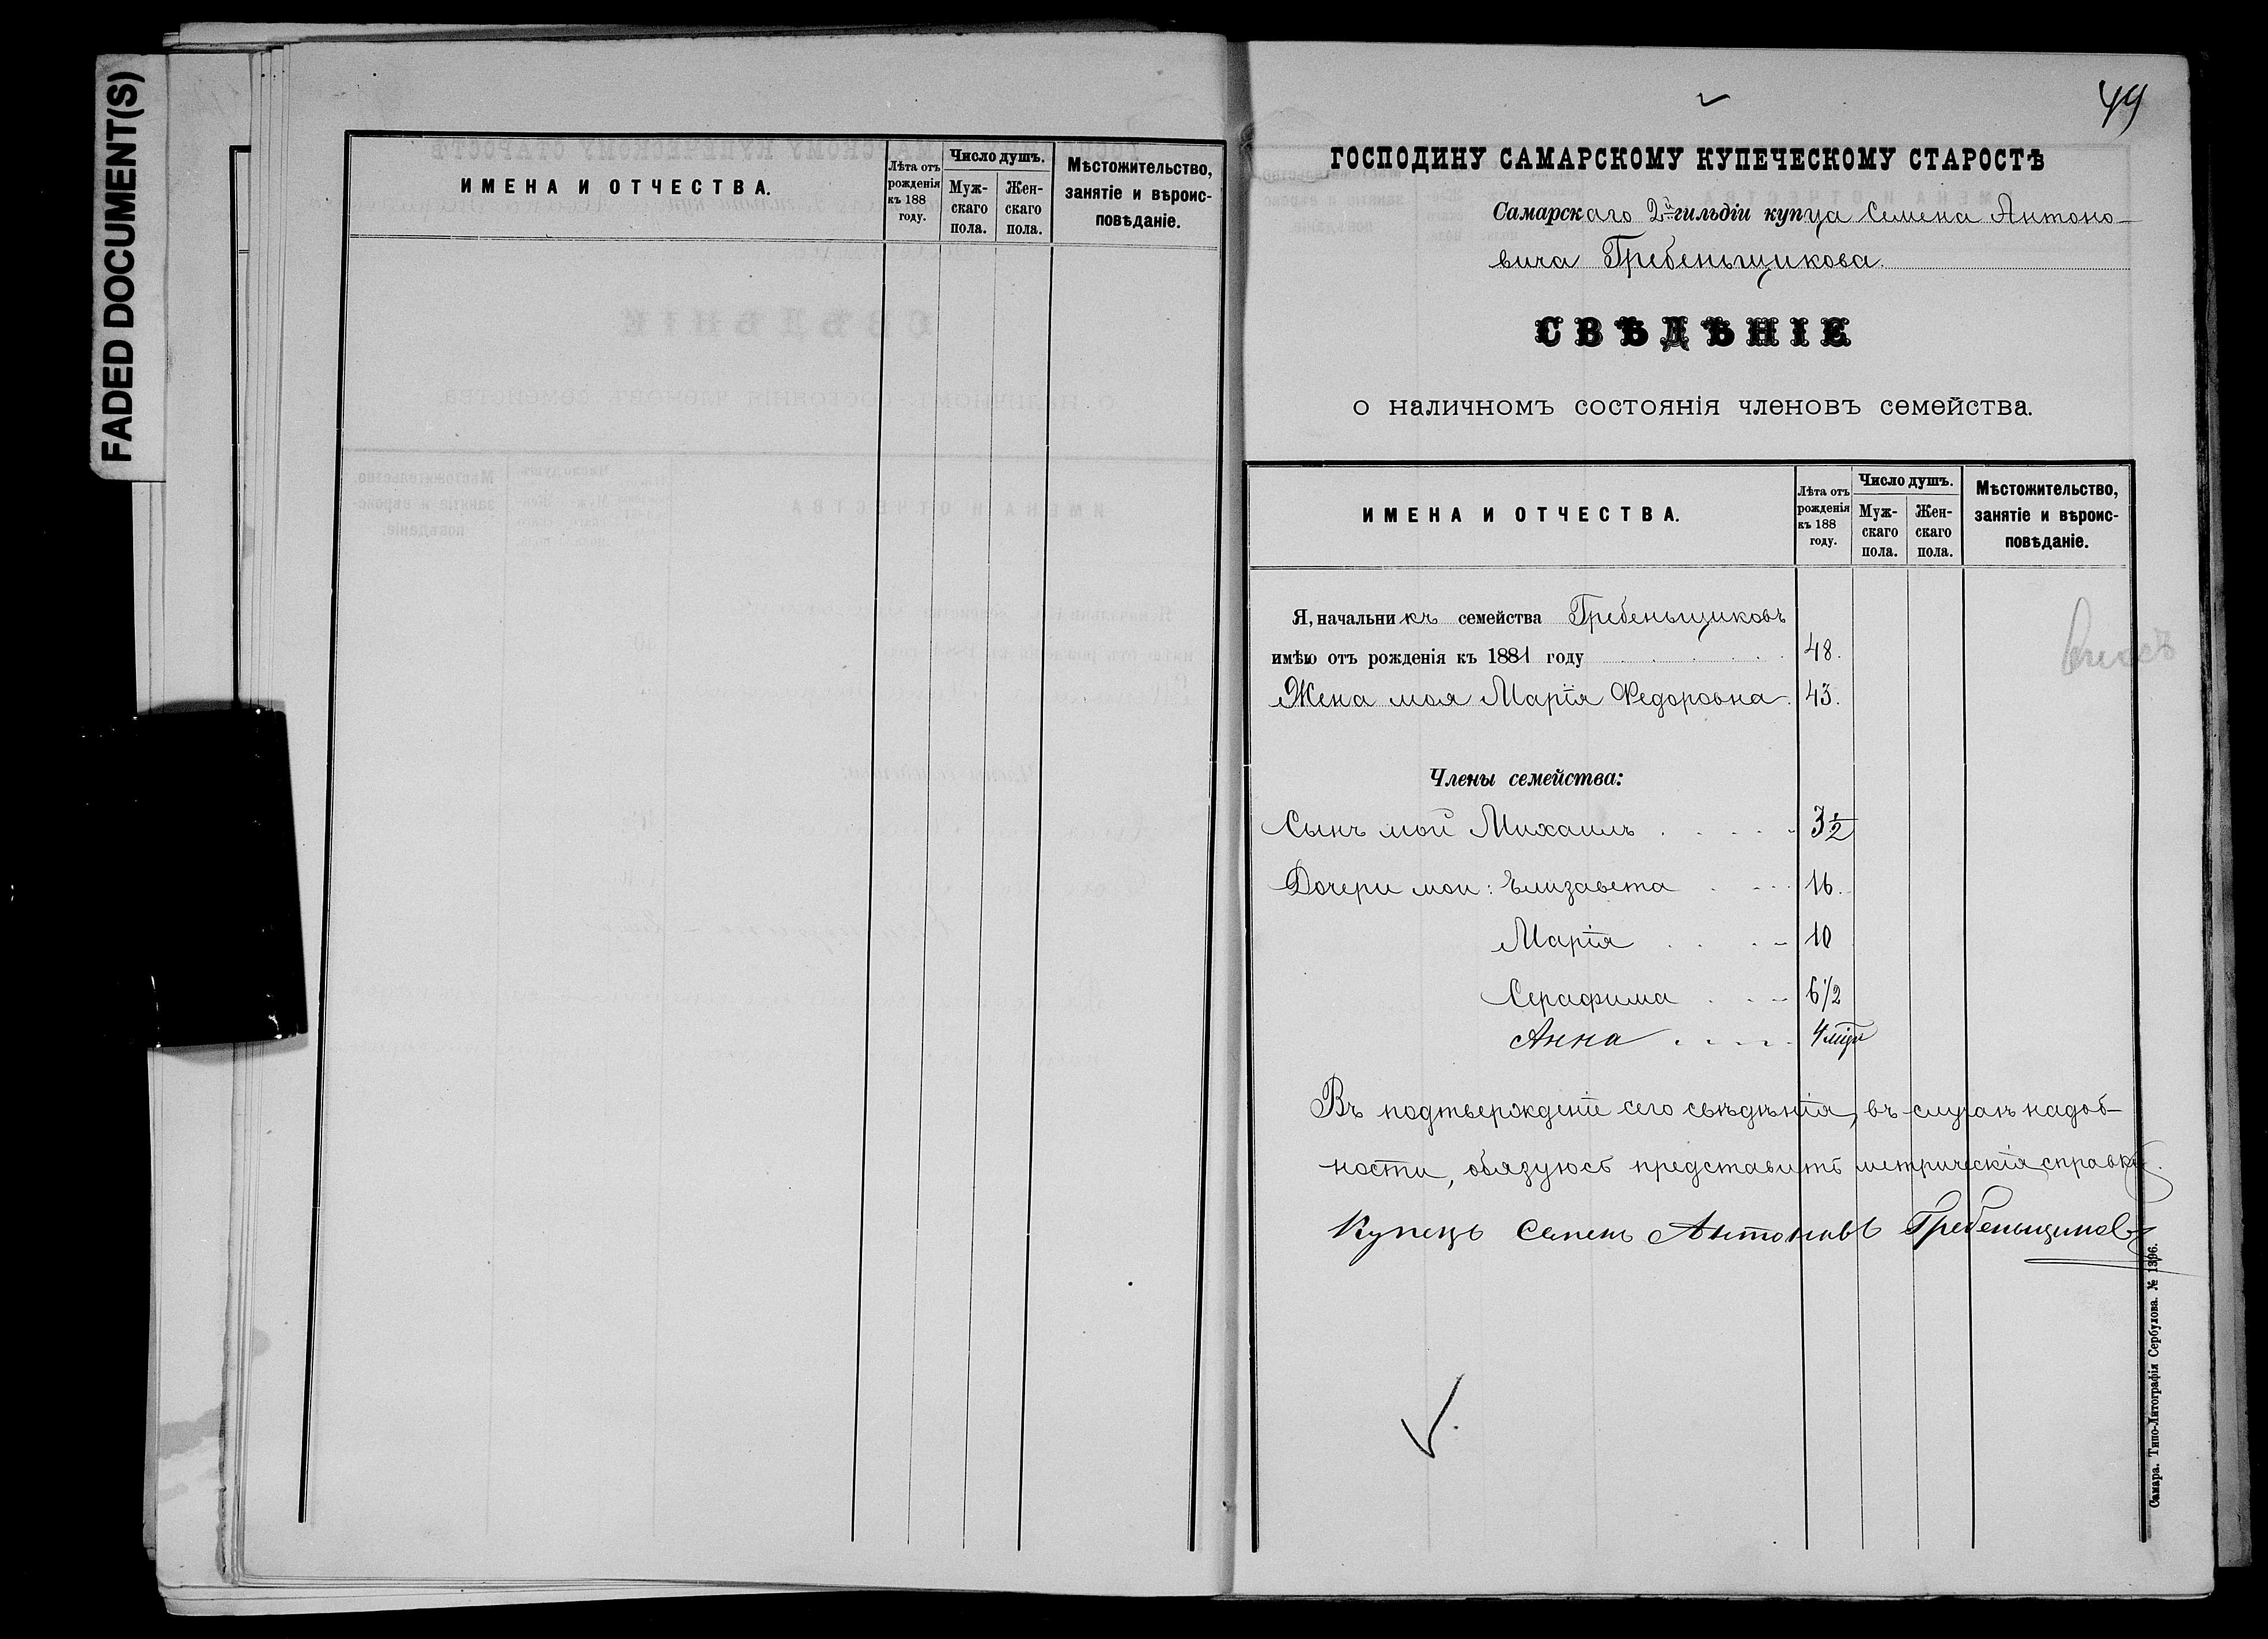 FADED DOCUMENT(S)
ИМЕНА И ОТЧЕСТВА.
Лѣта отъ рожденія къ 188 году.
Число душъ.
Мужскаго пола.
Женскаго пола.
Мѣстожительство, занятіе и вѣроисповѣданіе.
49
ГОСПОДИНУ САМАРСКОМУ КУПЕЧЕСКОМУ СТАРОСТѢ
Самарскаго 2й гильдіи купца Семена Антоно-
вича Гребеньщикова.
СВѢДѢНІЕ
о наличномъ состоянія членовъ семейства.
ИМЕНА И ОТЧЕСТВА.
Лѣта отъ рожденія къ 188 году.
Число душъ.
Мужскаго пола.
Женскаго пола.
Мѣстожительство, занятіе и вѣроисповѣданіе.
Я, начальникъ семейства Гребеньщиковъ
имѣю отъ рожденія къ 1881 году 48.
Жена моя Марія Федоровна. 43.
Члены семейства:
Сынъ мой Михаилъ 3 1/2
Дочери мои: Елизавета 16.
Марія 10
Серафима 6 1/2
Анна 4 міц
Въ подтвержденіе сего свѣдѣнія, въ случаѣ надоб-
ности, обязуюсь представить метрическія справки.
Купецъ Семенъ Антоновъ Гребеньщиковъ
Самара. Типо-Литографія Сербулова. № 1396.